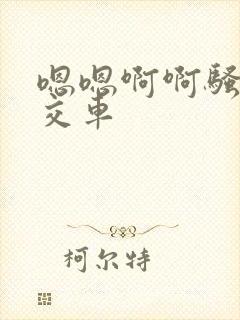 嗯嗯啊啊骚
交车
柯尔特